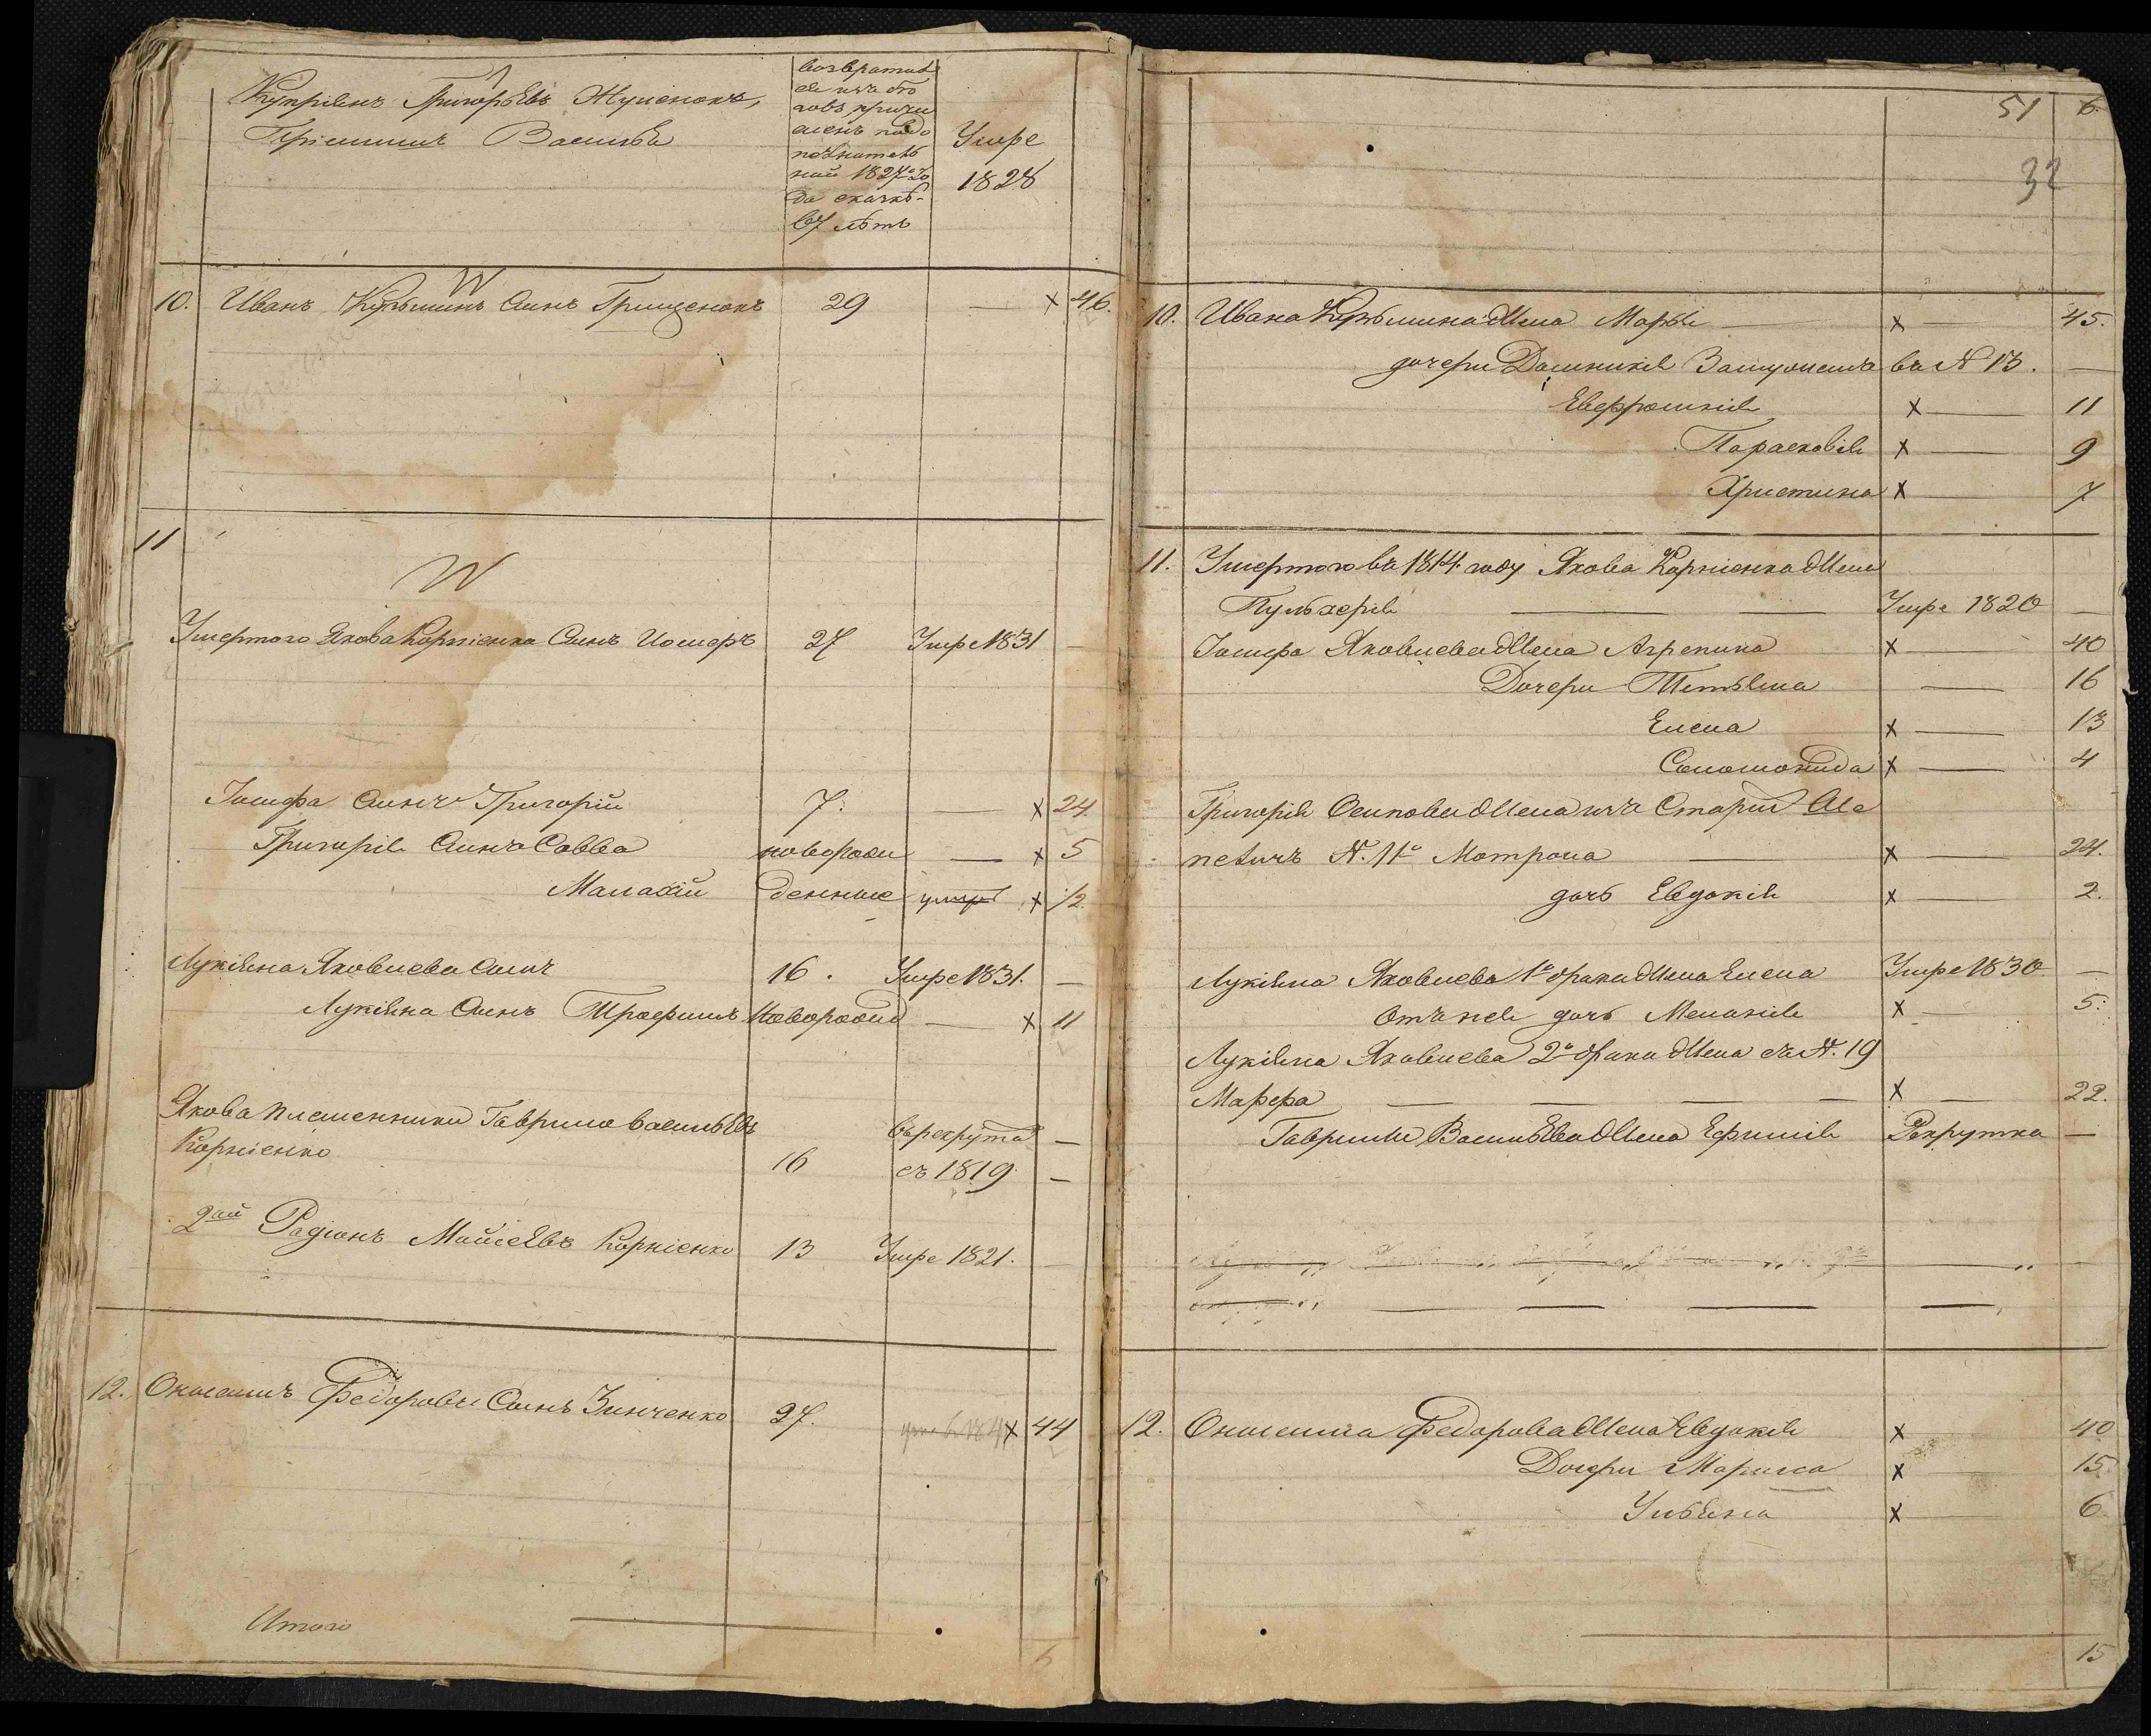 Григорьевъ
возвратив
ся изъ бѣ
говъ причи
сленъ по до
полнитель
ной 1827 го
да сказкѣ
Умре
1828
51 6.
32
10. Иванъ Кузьминъ Сынъ Грищенокъ 29 — x 46.
11
Умертого Якова Корніенка Сынъ Иосифъ 27 Умре 1831 —
Іосифа Сынъ Григорій 7. — x 24.
Григорія Сынъ Савва новорож — x 5
Малахій денные умре x 1/2
Лукіяна Яковлева Сынъ 16. Умре 1831. —
Лукіяна Сынъ Трофимъ Новорожд — x 11
Якова племенники Гаврило Васильевъ
Корніенко 16 въ рекрута —
съ 1819. —
2ой Радіонъ Мойсеевъ Корніенко 13 Умре 1821. —
12. Федорова Сынъ Зинченко 27. x 44
Итого
6
10. Ивана Кузьмина Жена Марья x — 45.
дочери въ N 13. —
Евфросинія x — 11
Парасковія x — 9
Христина x — 7
11. Умертого въ 1814 году Якова Корніенка Жена
Пульхерія — — Умре 1820 —
Іосифа Яковлева Жена Агрепина x — 40
Дочери Тетьяна — 16
Елена x — 13
Соломонида x — 4
Григорія Осипова Жена изъ Старой
N. 11о Мотрона — x — 24.
дочь Евдокія x — 2.
Лукіяна Яковлева 1о брака Жена Елена Умре 1830 —
Отъ нея дочь Меланія x — 5.
Лукіяна Яковлева 2о брака Жена съ N. 19
Марфа — — — — x — 22.
Гаврилы Васильева Жена Ефимія Рекрутка —
12. Федорова Жена Евдокія x — 40
Дочери Марина x — 15.
Ульяна x — 6
15